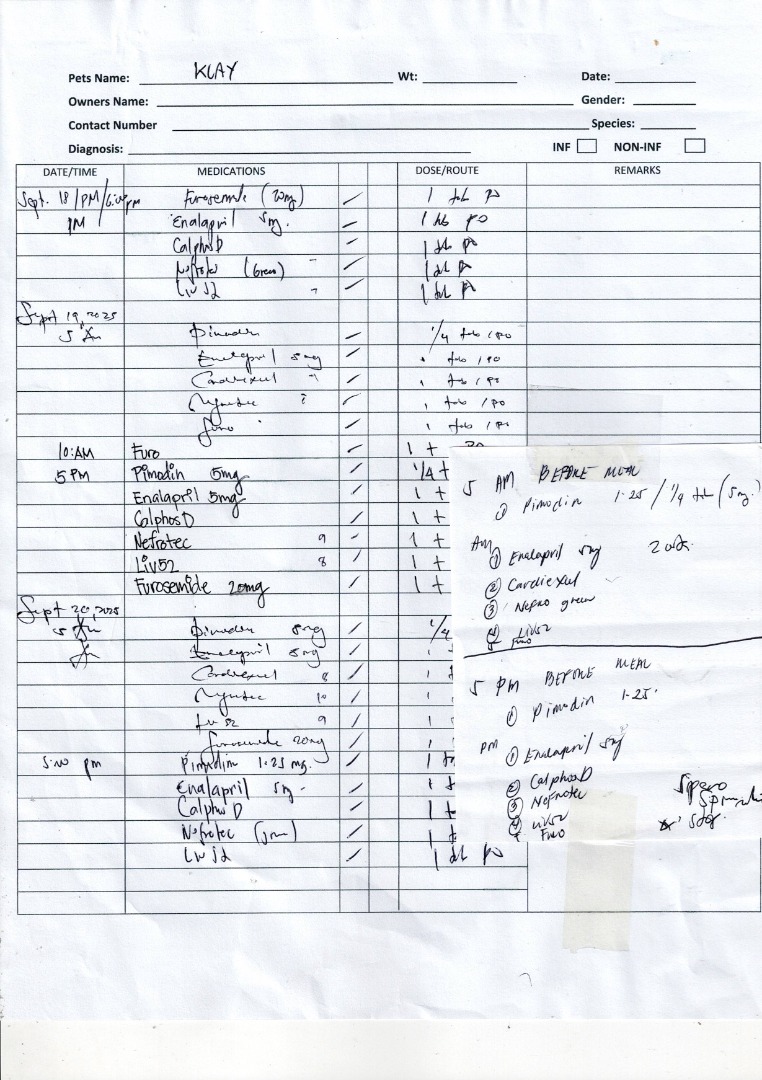 Pets Name: KLAY Wt: Date:
Owners Name: Gender:
Contact Number Species:
Diagnosis: INF NON-INF
DATE/TIME MEDICATIONS DOSE/ROUTE REMARKS
Sept. 18 /PM/6:00pm Furosemide (20mg) 1 tab po
PM Enalapril 5mg. 1 tab po
Calphos D 1 tab po
(Green) 1 tab po
Liv 52 1 tab po
Sept 19, 2025
5 Am Pimodin 1/4 tab / po
Enalapril 5mg tab / po
Cardiexul tab / po
tab / po
furo tab / po
10:AM Furo 1 t
5 PM Pimodin 5mg 1/4 t
Enalapril 5mg 1 t
Calphos D 1 t
Nefrotec 9 1 t
Liv52 8 1 t
Furosemide 20mg 1 t
Sept 20, 2025
5 Am Pimodin 5mg 1/4
Am Enalapril 5mg 1
Cardiexul 8 1
10 1
Liv 52 9 1
Furosemide 20mg 1
5:00 pm Pimodin 1.25 mg. 1
Enalapril 5mg.
Calphos D 1 t
Nefrotec 1 t
Liv 52 1 tab po
5 AM BEFORE MEAL
① Pimodin 1.25 / 1/4 tab (5mg.)
AM
① Enalapril 5mg
② Cardiexul
③ Nefro green
④ Liv52
furo
5 PM BEFORE MEAL
① Pimodin 1.25.
PM ① Enalapril 5mg
② CalphosD
③ Nefrotec
④ Liv52
Furo